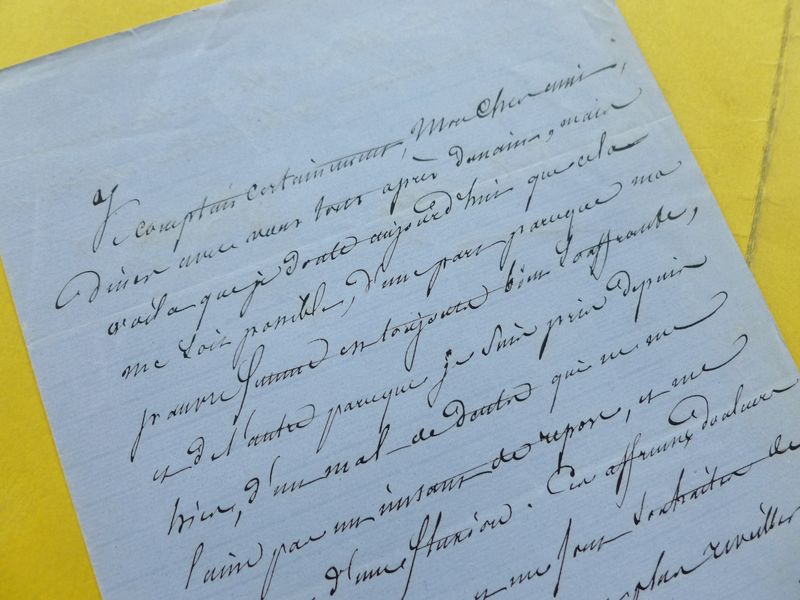 Je comptais certainement, Mon cher ami,
Diner avec vous tous après demain, mais
voila que je doute aujourd'hui que cela
me soit possible, d'une part parceque ma
pauvre femme est toujours bien souffrante,
et de l'autre parceque je suis pris depuis
hier, d'un mal de dents qui ne me
laisse pas un instant de repos, et me
d'une fluxion. Ces affreuses douleurs
me sont
plus reveiller